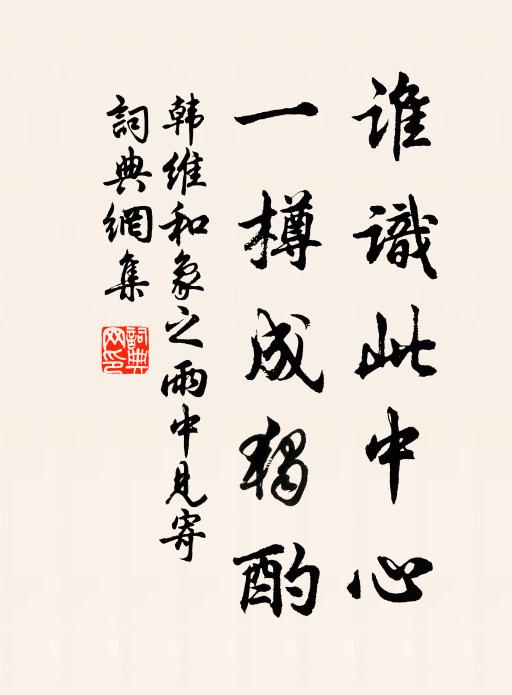 谁識此中心
一樽成独酌
韩维和象之雨中見寄
詞典網集
詞典网印